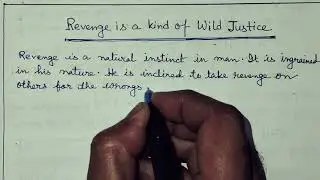 Revenge is a kind of Wild Justice
Revenge is a natural instinct in man. It is ingrained
in his nature. He is inclined to take revenge on
others for the wrongs